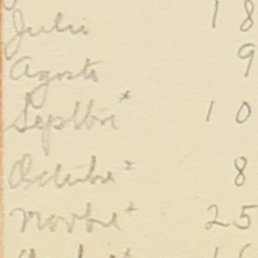 Julio 18
Agosto 9
Septbre* 10
Octubre* 8
Novbre* 25